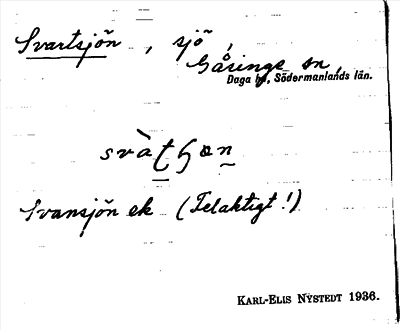 Svartsjön, sjö,
Gåsinge sn,
Daga hd, Södermanlands län.
Svansjön ek (Felaktigt!)
KARL-ELIS NYSTEDT 1936.